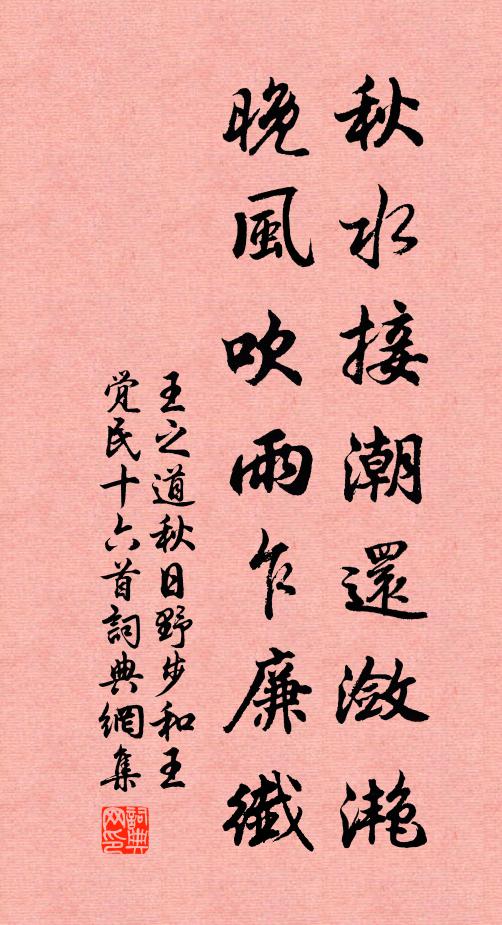 秋水接潮還瀲灧
晚風吹雨乍廉纖
王之道秋日野步和王
覚民十六首詞典網集
詞典网印